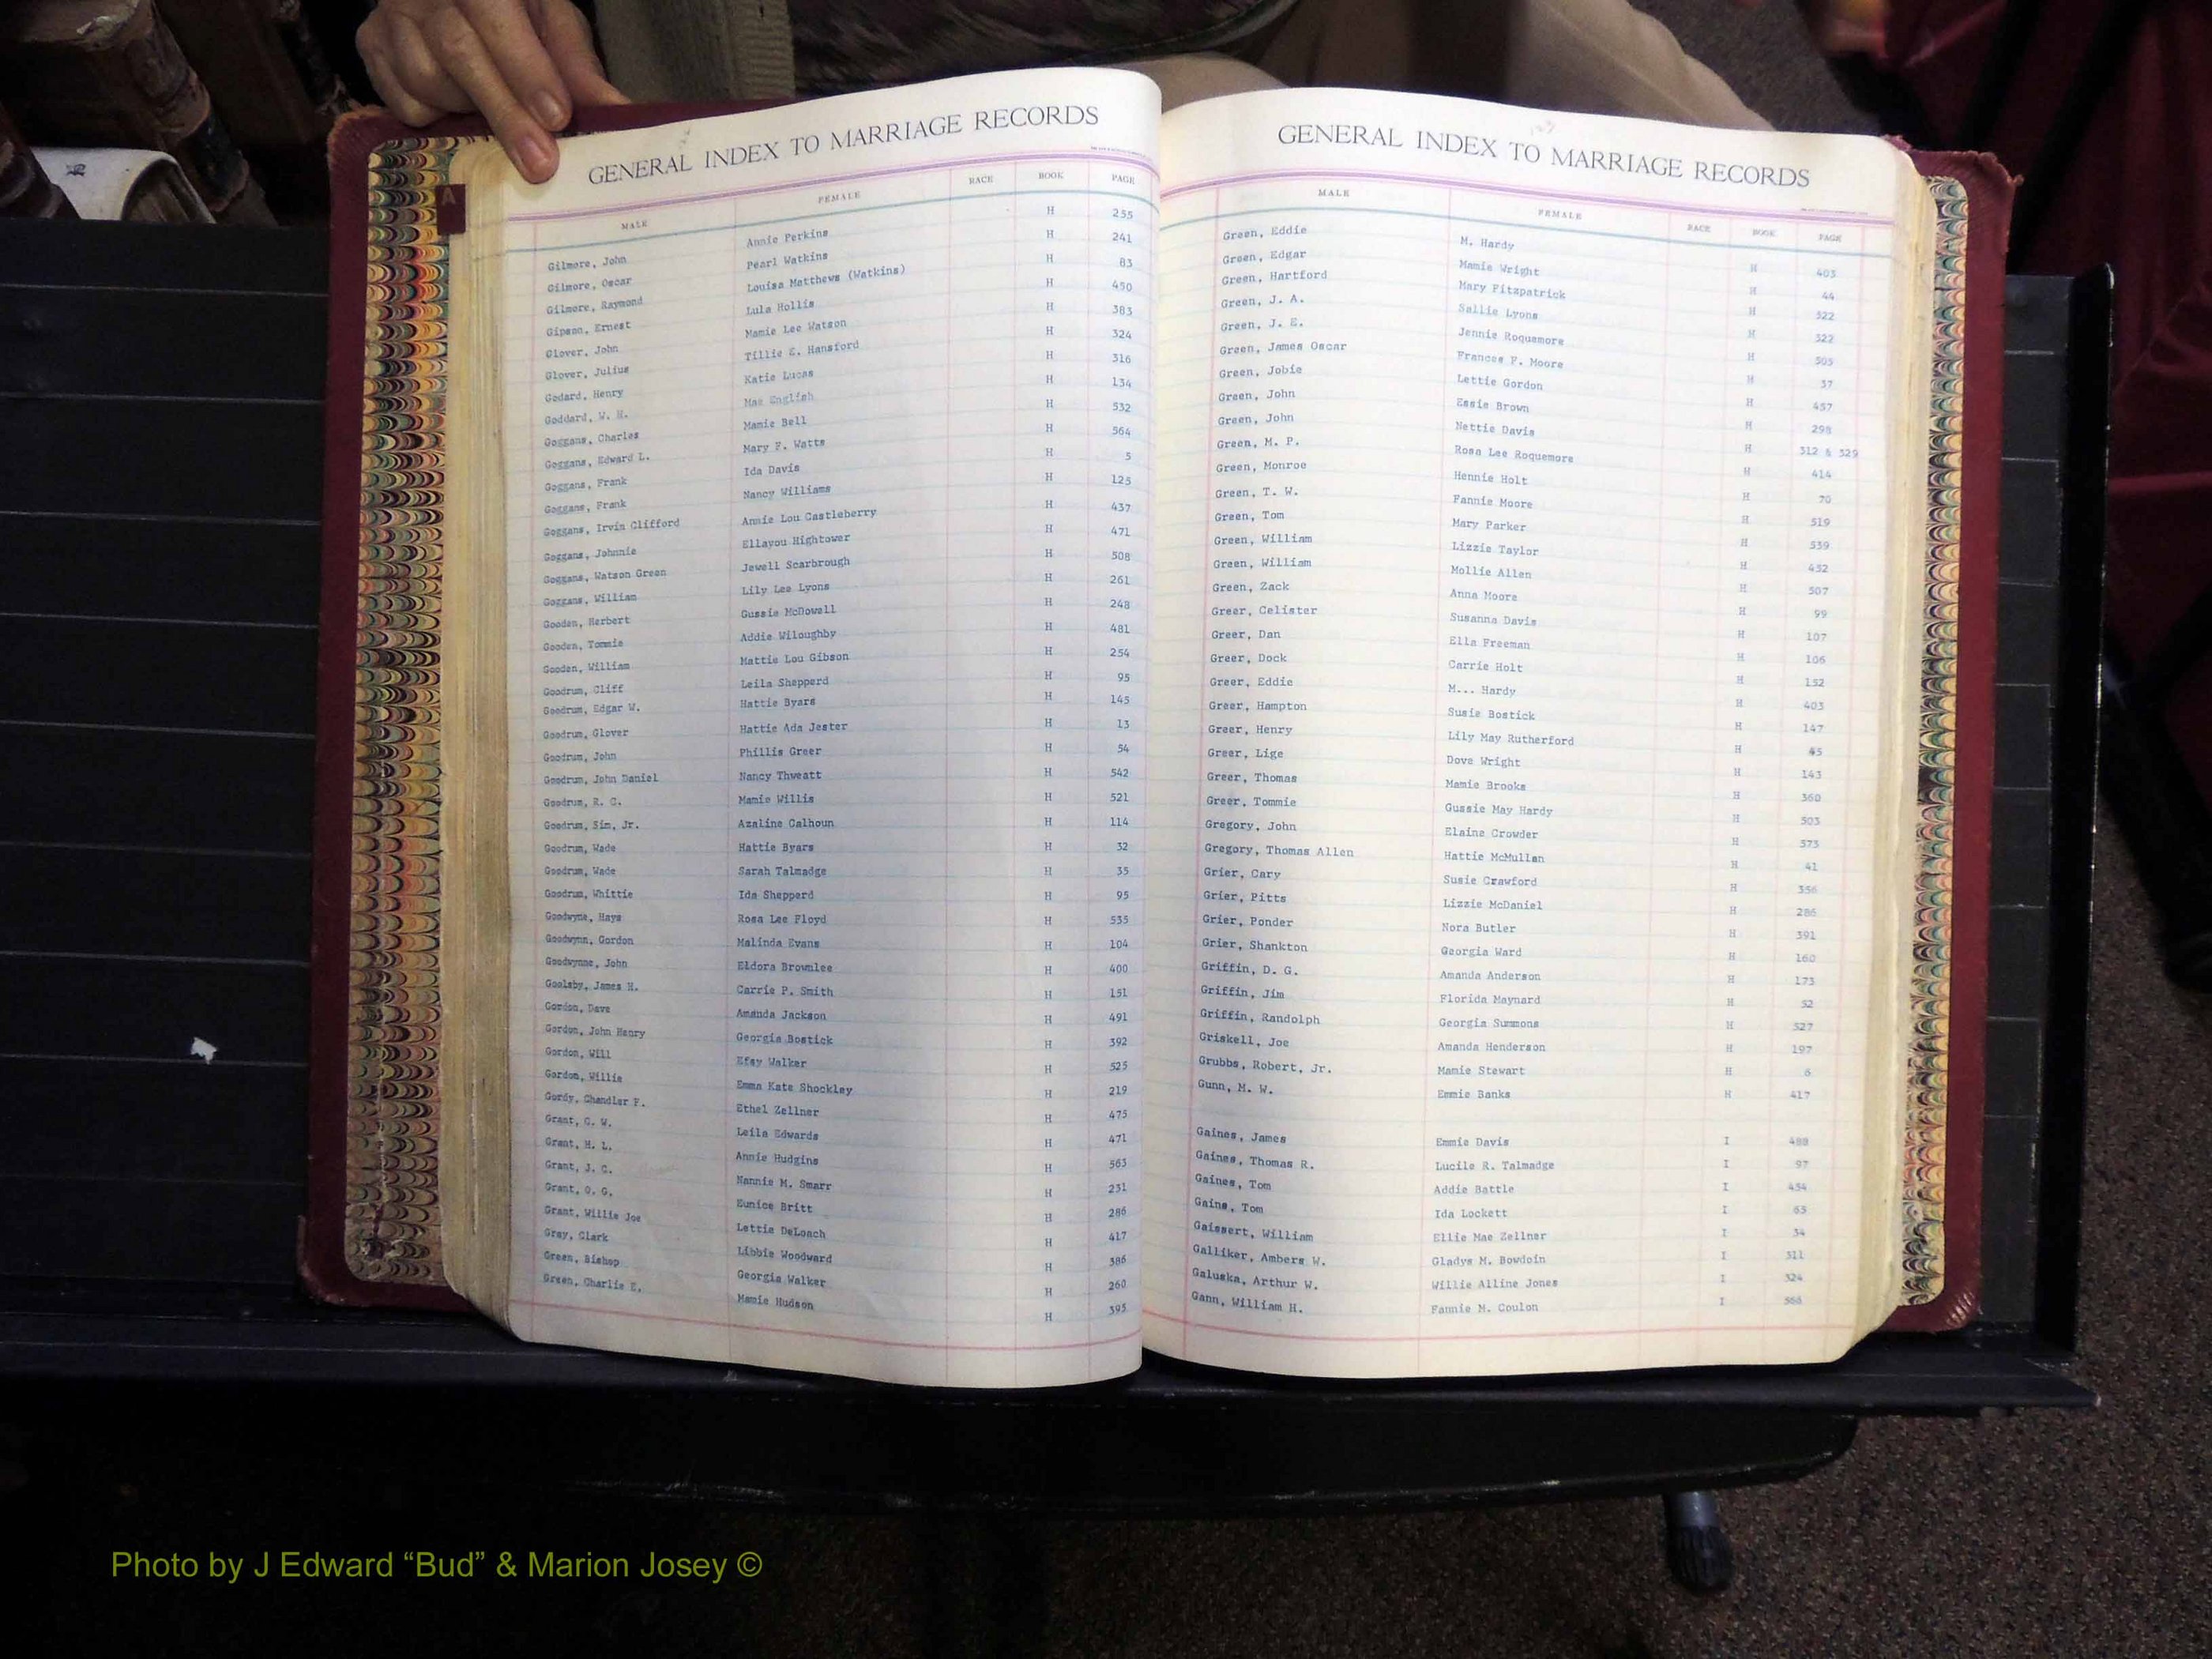 GENERAL INDEX TO MARRIAGE RECORDS
MALE FEMALE RACE BOOK PAGE
Gilmore, John Annie Perkins H 255
Gilmore, Oscar Pearl Watkins H 241
Gilmore, Raymond Louisa Matthews (Watkins) H 83
Gipson, Ernest Lula Hollis H 450
Glover, John Mamie Lee Watson H 383
Glover, Julius Tillie E. Hansford H 324
Godard, Henry Katie Lucas H 316
Goddard, W. H. Mae English H 134
Goggans, Charles Mamie Bell H 532
Goggans, Edward L. Mary F. Watts H 564
Goggans, Frank Ida Davis H 5
Goggans, Frank Nancy Williams H 125
Goggans, Irvin Clifford Annie Lou Castleberry H 437
Goggans, Johnnie Ellayou Hightower H 471
Goggans, Watson Green Jewell Scarbrough H 508
Goggans, William Lily Lee Lyons H 261
Gooden, Herbert Gussie McDowell H 248
Gooden, Tommie Addie Wiloughby H 481
Gooden, William Mattie Lou Gibson H 254
Goodrum, Cliff Leila Shepperd H 95
Goodrum, Edgar W. Hattie Byars H 145
Goodrum, Glover Hattie Ada Jester H 13
Goodrum, John Phillis Greer H 54
Goodrum, John Daniel Nancy Thweatt H 542
Goodrum, R. C. Mamie Willis H 521
Goodrum, Sim, Jr. Azaline Calhoun H 114
Goodrum, Wade Hattie Byars H 32
Goodrum, Wade Sarah Talmadge H 35
Goodrum, Whittie Ida Shepperd H 95
Goodwyne, Hays Rosa Lee Floyd H 535
Goodwynn, Gordon Malinda Evans H 104
Goodwynne, John Eldora Brownlee H 400
Goolsby, James H. Carrie P. Smith H 151
Gordon, Dave Amanda Jackson H 491
Gordon, John Henry Georgia Bostick H 392
Gordon, Will Efay Walker H 525
Gordon, Willie Emma Kate Shockley H 219
Gordy, Chandler F. Ethel Zellner H 475
Grant, C. W. Leila Edwards H 471
Grant, H. L. Annie Hudgins H 563
Grant, J. C. Nannie M. Smarr H 231
Grant, O. G. Eunice Britt H 286
Grant, Willie Joe Lettie DeLoach H 417
Gray, Clark Libbie Woodward H 386
Green, Bishop Georgia Walker H 260
Green, Charlie E. Mamie Hudson H 395
GENERAL INDEX TO MARRIAGE RECORDS
MALE FEMALE RACE BOOK PAGE
Green, Eddie M. Hardy H 403
Green, Edgar Mamie Wright H 44
Green, Hartford Mary Fitzpatrick H 522
Green, J. A. Sallie Lyons H 322
Green, J. E. Jennie Roquemore H 505
Green, James Oscar Frances P. Moore H 37
Green, Jobie Lettie Gordon H 457
Green, John Essie Brown H 298
Green, John Nettie Davis H 312 & 329
Green, M. P. Rosa Lee Roquemore H 414
Green, Monroe Hennie Holt H 70
Green, T. W. Fannie Moore H 519
Green, Tom Mary Parker H 539
Green, William Lizzie Taylor H 452
Green, William Mollie Allen H 507
Green, Zack Anna Moore H 99
Greer, Celister Susanna Davis H 107
Greer, Dan Ella Freeman H 106
Greer, Dock Carrie Holt H 152
Greer, Eddie M... Hardy H 403
Greer, Hampton Susie Bostick H 147
Greer, Henry Lily May Rutherford H 45
Greer, Lige Dove Wright H 143
Greer, Thomas Mamie Brooks H 360
Greer, Tommie Gussie May Hardy H 503
Gregory, John Elaine Crowder H 573
Gregory, Thomas Allen Hattie McMullan H 41
Grier, Cary Susie Crawford H 356
Grier, Pitts Lizzie McDaniel H 286
Grier, Ponder Nora Butler H 391
Grier, Shankton Georgia Ward H 160
Griffin, D. G. Amanda Anderson H 173
Griffin, Jim Florida Maynard H 52
Griffin, Randolph Georgia Summons H 527
Griskell, Joe Amanda Henderson H 197
Grubbs, Robert, Jr. Mamie Stewart H 6
Gunn, M. W. Emmie Banks H 417
Gaines, James Emmie Davis I 488
Gaines, Thomas R. Lucile R. Talmadge I 97
Gaines, Tom Addie Battle I 454
Gains, Tom Ida Lockett I 63
Gaissert, William Ellie Mae Zellner I 34
Galliker, Ambers W. Gladys M. Bowdoin I 311
Galuska, Arthur W. Willie Alline Jones I 324
Gann, William H. Fannie M. Coulon I 566
Photo by J Edward “Bud” & Marion Josey ©